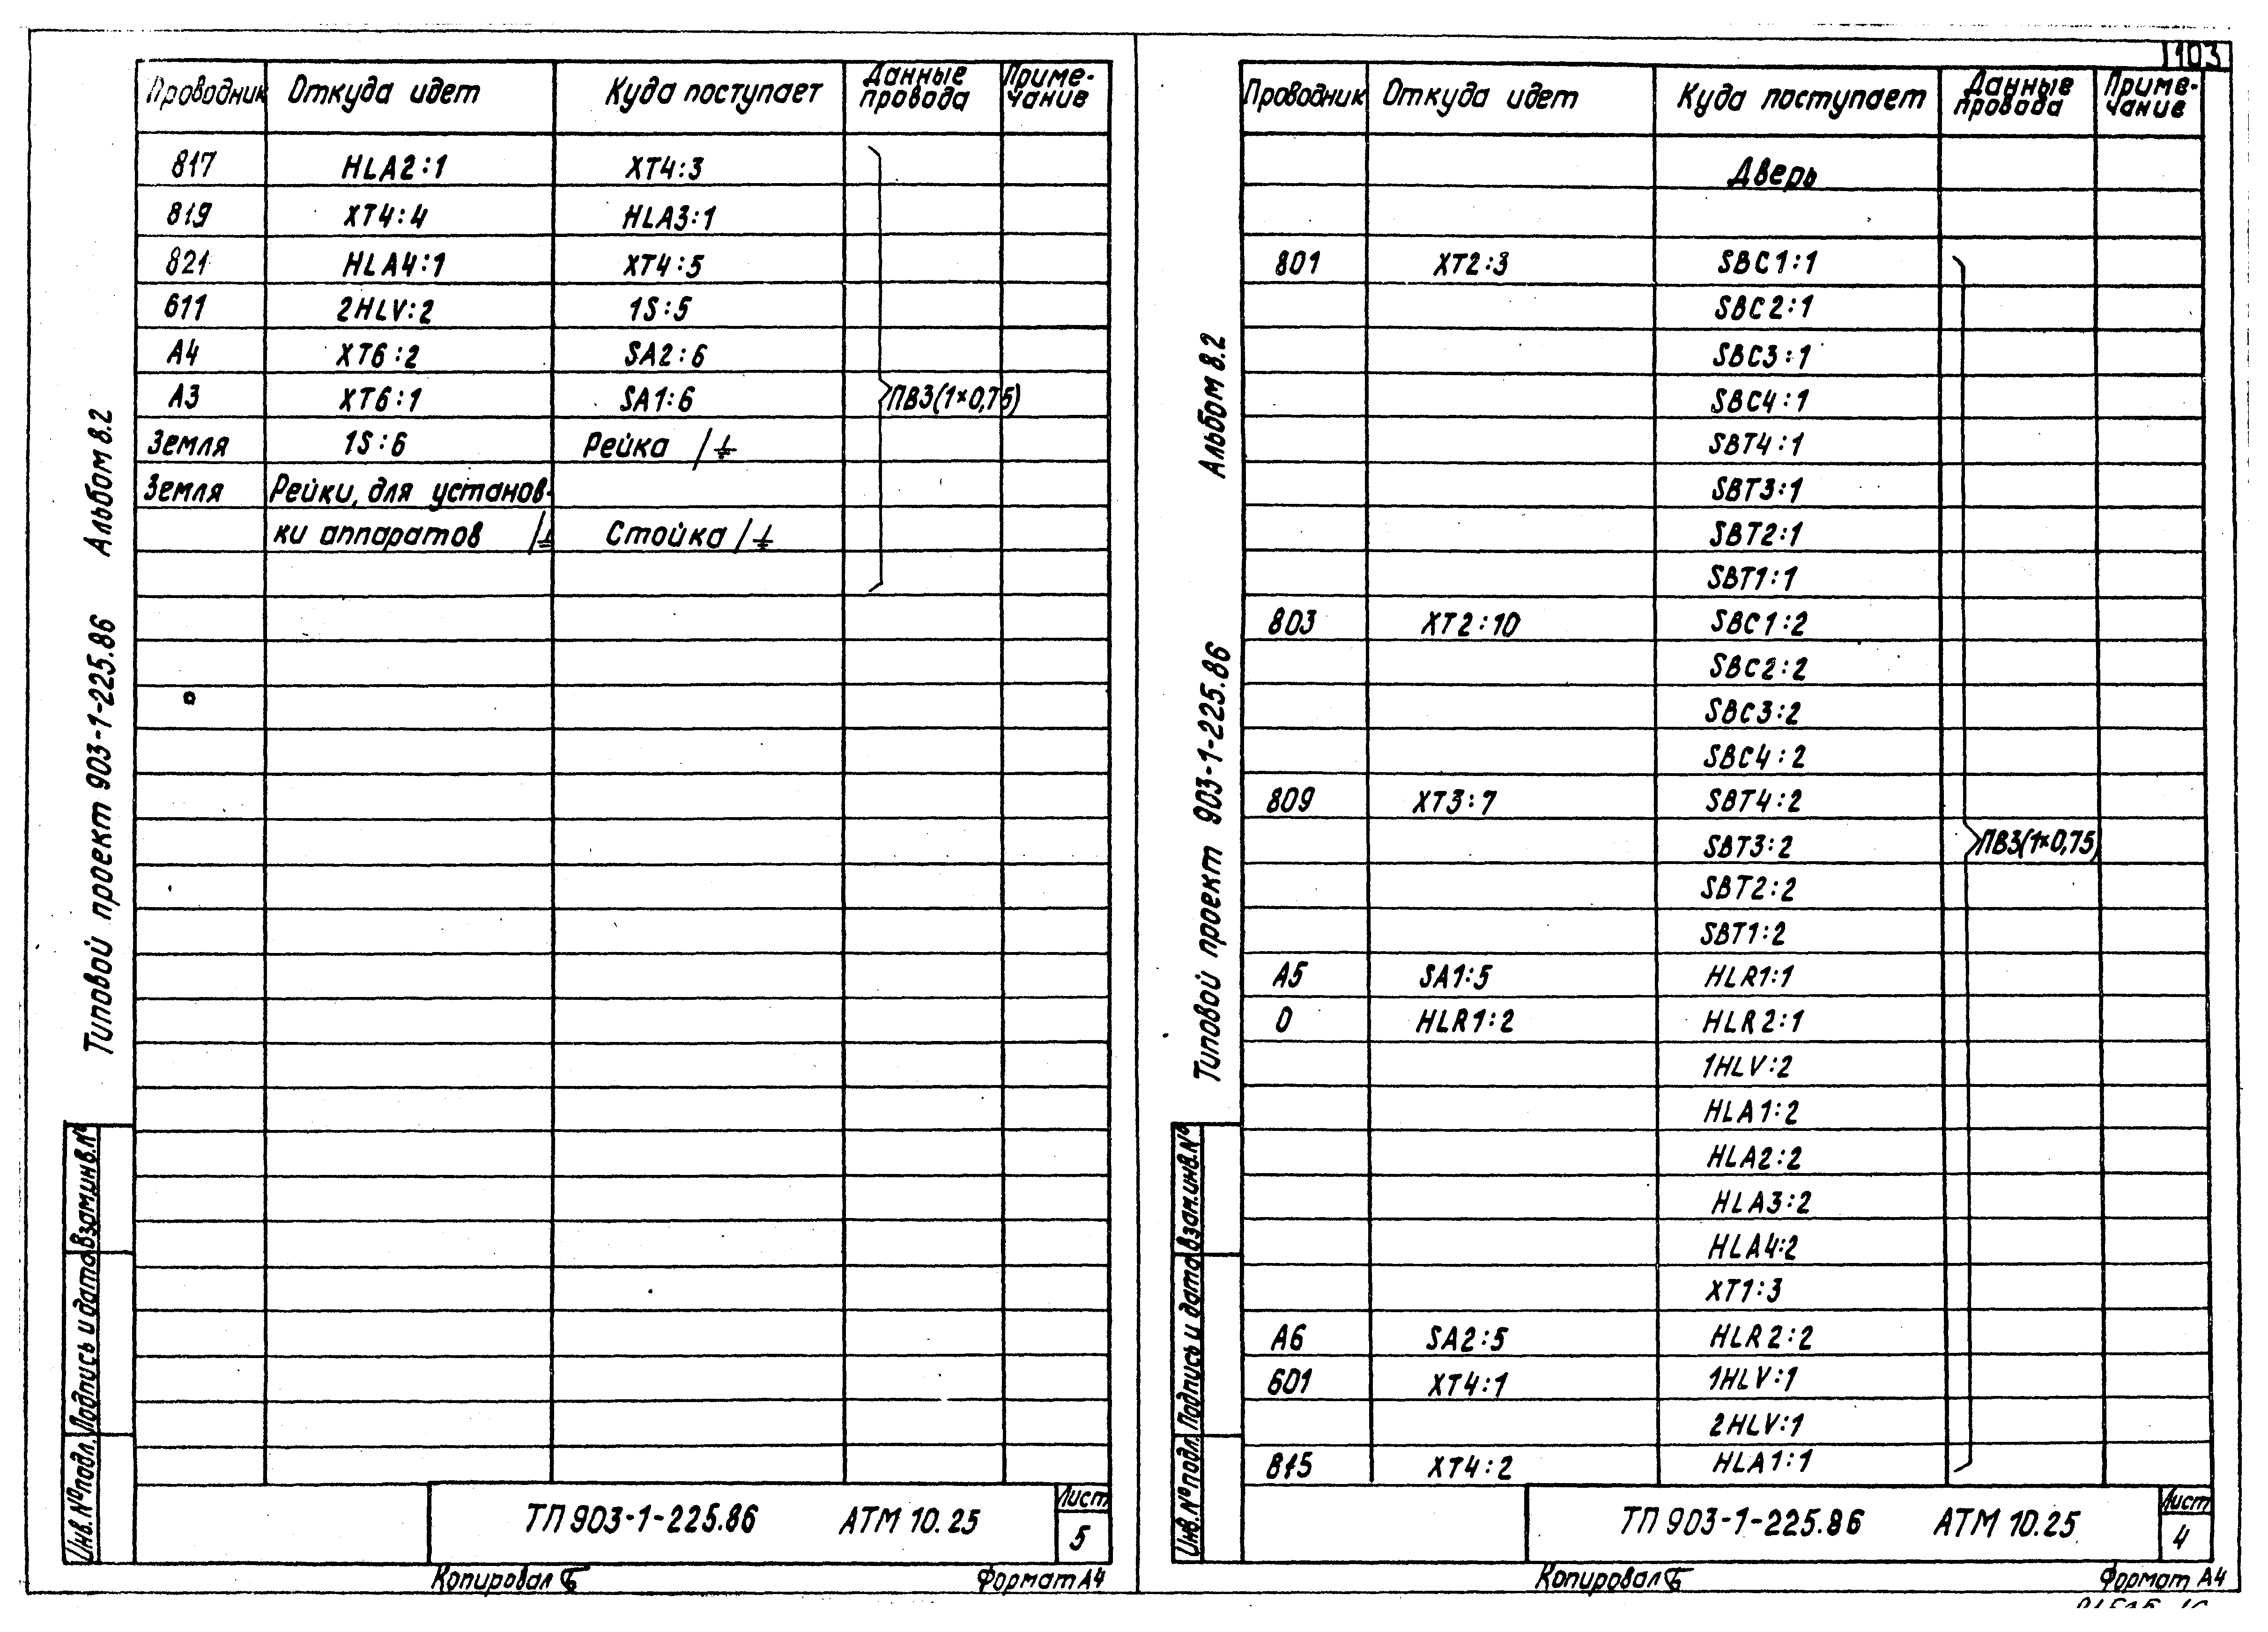 103
Проводник Откуда идет Куда поступает Данные провода Приме-чание
817 HLA2:1 XT4:3
819 XT4:4 HLA3:1
821 HLA4:1 XT4:5
611 2HLV:2 1S:5
А4 XT6:2 SA2:6
А3 XT6:1 SA1:6 ПВ3(1×0,75)
Земля 1S:6 Рейка /⏚
Земля Рейки, для установ-
ки аппаратов /⏚ Стойка /⏚
Типовой проект 903-1-225.86 Альбом 8.2
Инв.№подл. Подпись и дата Взам.инв.№
ТП 903-1-225.86 АТМ 10.25
Лист
5
Копировал
Формат А4
Проводник Откуда идет Куда поступает Данные провода Приме-чание
Дверь
801 XT2:3 SBC1:1
SBC2:1
SBC3:1
SBC4:1
SBT4:1
SBT3:1
SBT2:1
SBT1:1
803 XT2:10 SBC1:2
SBC2:2
SBC3:2
SBC4:2
809 XT3:7 SBT4:2
SBT3:2 ПВ3(1×0,75)
SBT2:2
SBT1:2
А5 SA1:5 HLR1:1
0 HLR1:2 HLR2:1
1HLV:2
HLA1:2
HLA2:2
HLA3:2
HLA4:2
XT1:3
А6 SA2:5 HLR2:2
601 XT4:1 1HLV:1
2HLV:1
815 XT4:2 HLA1:1
Типовой проект 903-1-225.86 Альбом 8.2
Инв.№подл. Подпись и дата Взам.инв.№
ТП 903-1-225.86 АТМ 10.25
Лист
4
Копировал
Формат А4